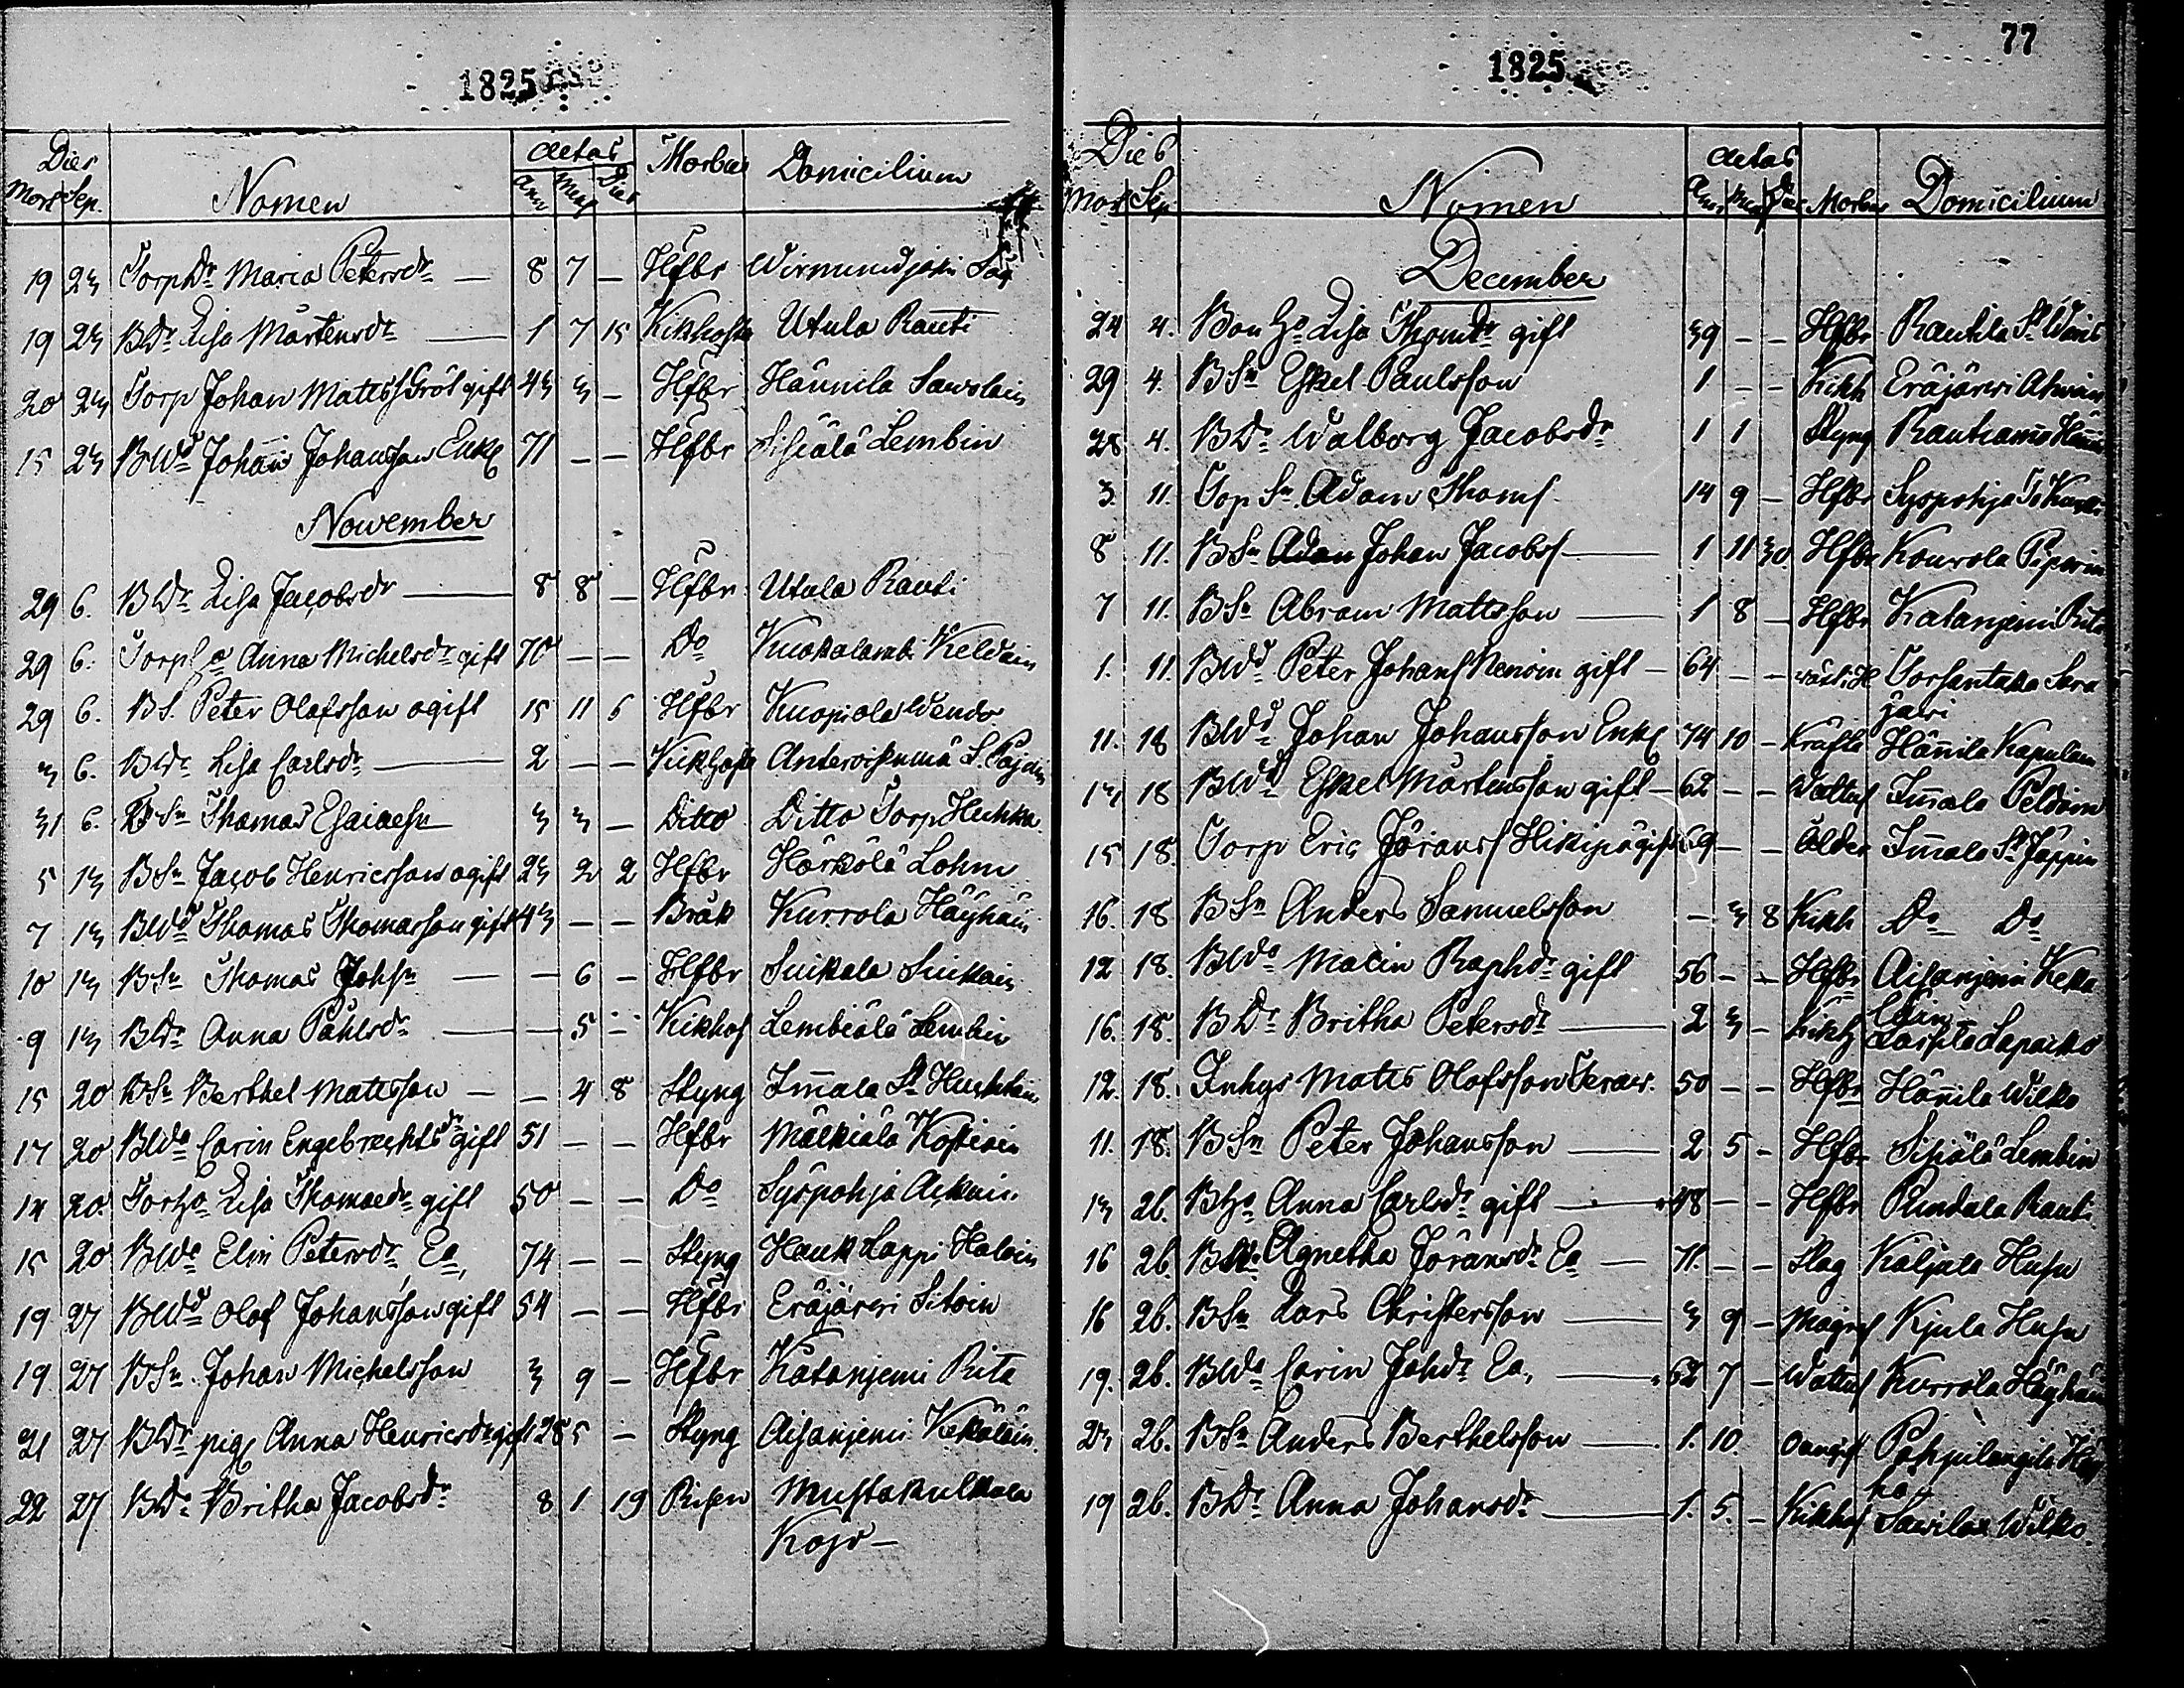 1825
Dies Nomen aetas Morbus Domicilium
Mort Sep. Ann Mens Dies
19 23 Torp Dr Maria Petersdr — 8 7 — Hfbr Wirmundjoki
19 23 BDr Lisa Mårtensdr — 1 7 15 Kikhosta Utula Rauti
20 23 Torp Johan Mattss Gröt gift 43 3 — Hfbr Hännila Sawolain
15 23 BWd Johan Johansson Enkl 71 — — Hfbr Sihiälä Lembin
Nowember
29 6. BDr Lisa Jacobsdr — 8 8 — Hfbr Utula Rauti
29 6. Torp Anna Michelsdr gift 70 — — Do Kuokalambi Keldain
29 6. BS. Peter Olofsson ogift 15 11 6 Hfbr Kuopiala Wends
3 6. BDr Lisa Carlsdr — 2 — — Kickhosta
31 6. Sn Thomas Esaiaesn 3 3 — Ditto Ditto Torp
5 13 BSn Jacob Henricsson ogift 23 2 2 Hfbr Härkälä Lohm
7 13 BWd Thomas Thomasson gift 43 — — Bråk Kurrola Häyhäin
10 13 BSn Thomas Johsn — — 6 — Hfbr Suikala Suikain
9 13 BDr Anna Påhlsdr — — 5 — Kikhos Lembiälä Lembin
15 20 BSn Berthel Mattsson — — 4 8 Styng Immala St
17 20 BWda Carin Engebrechtsdr gift 51 — — Hfbr Mälkiälä Koskiain
14 20 Lisa Thomaedr gift 50 — — Do Syspohja Ackain
15 20 BWda Elin Petersdr Ea, 74 — — Styng Hauk Lappi Haloin
19 27 BWd Olof Johansson gift 54 — — Hfbr Eräjärwi Sitoin
19 27 BSn Johan Michelsson 3 9 — Hfbr Katanjemi Rita
21 27 BDr pig Anna Henricsdr gift 28 5 — Styng Aisanjemi Kekäläin
22 27 BDr Britha Jacobsdr 8 1 19 Risen Mustakulkala
Kojo —
77
1825
Dies Nomen aetas Morbus Domicilium
Mort Sep Ann Mens Dies
December
24 4. Bon Ho Lisa Thomdr gift 39 — — Hfbr Rautila St
29 4. BSn Eskel Paulsson 1 — — Kikh Eräjärwi
28 4. BDr Walborg Jacobsdr 1 1 Styng
3. 11. Torp Sn Adam Thoms 14 9 — Hfbr Syspohja
8 11. BSn Adam Johan Jacobss — 1 11 30 Hfbr Kourola Piparin
7 11. BSn Abram Mattsson — 1 8 — Hfbr Katanjemi Rita
1. 11. BWd Peter Johans gift — 64 — — Torsantaka Sara
järwi
11. 18 BWd Johan Johansson Enkl 74 10 — Kräfta Hännila Kapulain
13 18 BWd Eskel Mårtensson gift — 62 — — Wattus Immala Peldoin
15 18. Torp Eric Jöranss gift 69 — — Ålder Immala St Jäppin
16. 18 BSn Anders Samuelsson — 3 8 Kikh Do Do
12 18. BWda Malin Raphdr gift 56 — — Hfbr Aisanjemi Keka
läin
16. 18. BDr Britha Petersdr — 2 3 — Kikh
12. 18. Inhys Matts Olofsson 50 — — Hfbr Hännila Wilko
11. 18. BSn Peter Johansson — 2 5 — Hfbr Sihiälä Lembin
13 26. BHo Anna Carlsdr gift — 48 — — Hfbr Pundala Rauti
16 26. Agnetha Jöransdr Ea — 71. — — Slag Kaljula Husu
16 26. BSn Lars Christersson — 3 9 — Magref Kjula Husu
19. 26. BWda Carin Johdr Ea, — 62 7 — Wattus Kurrola Häyhäin
23 26. BSn Anders Berthelsson — 1. 10
19 26. BDr Anna Johansdr — 1. 5. — Kikhos Sawilax Wilko